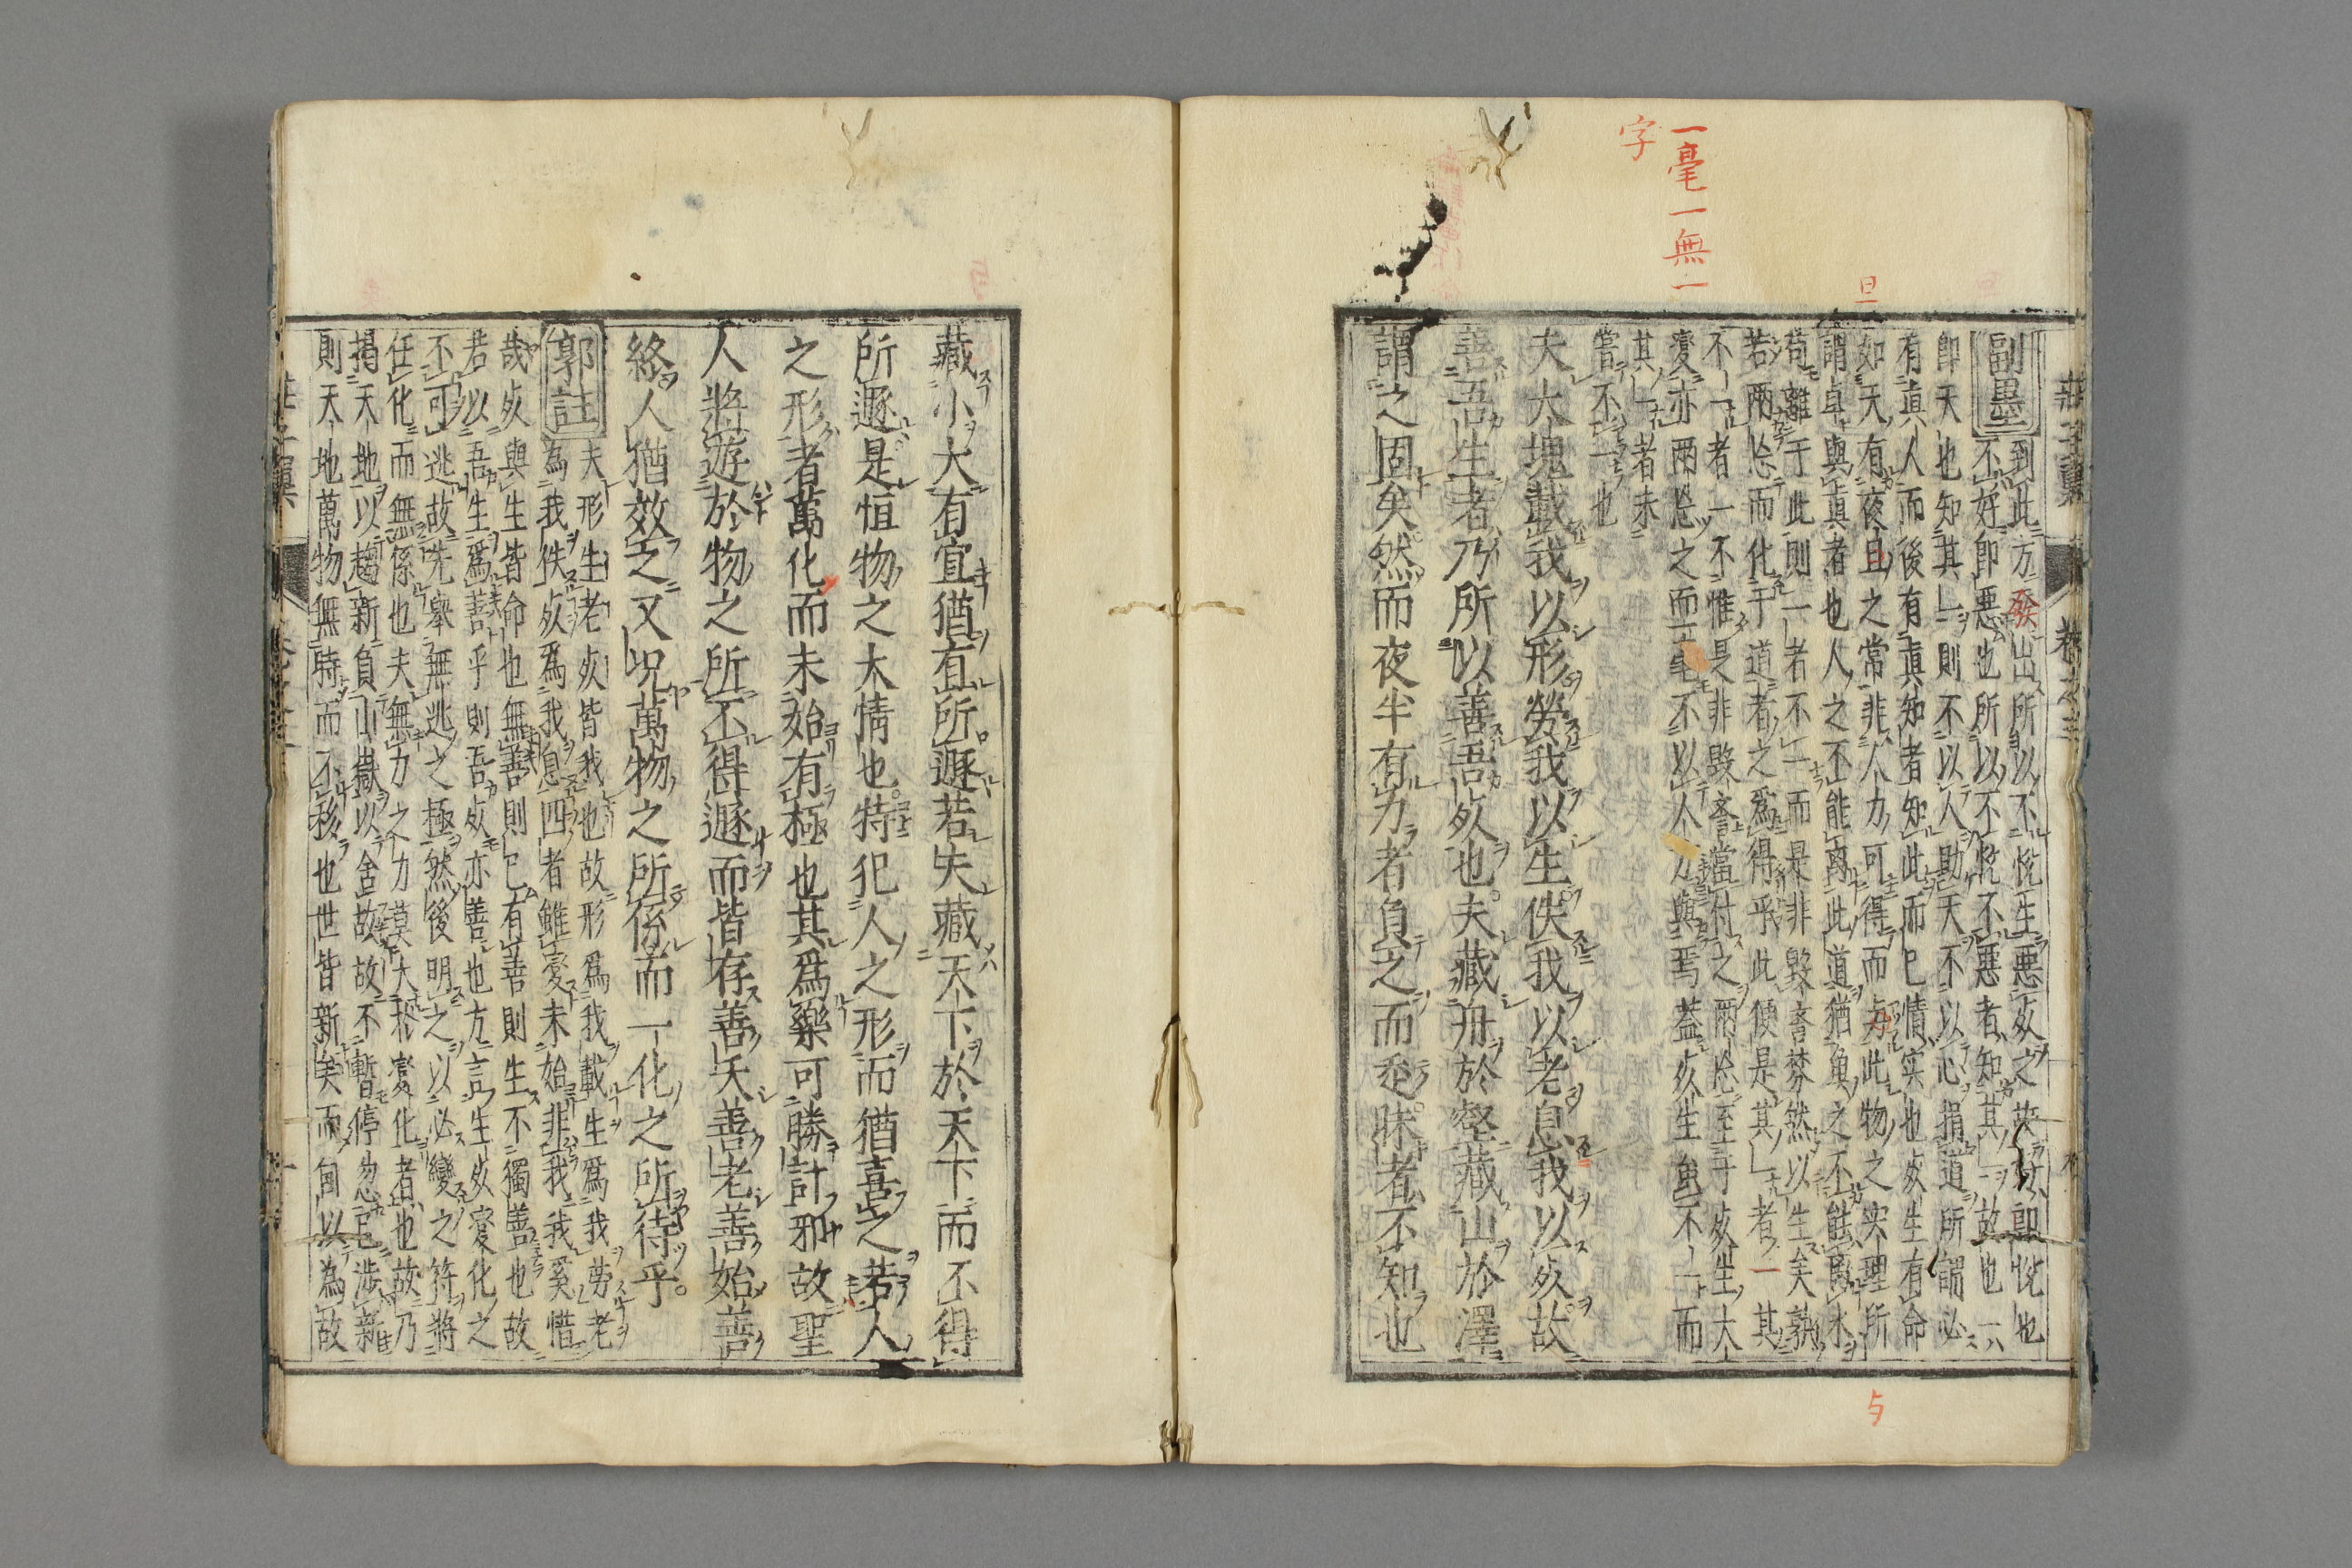 一毫一無一
字
旦
莊子翼　卷之三
副墨　到此方發出所以不悅生惡死之故好卽悅也
不好卽惡也所以不悅不惡者知其一故也一
卽天也知其一則不以人助天不以心捐道所謂必
有眞人而後有眞知者知此而已情实也死生有命
如天有夜旦之常非人力可得而与此物之实理所
謂卓與眞者也人之不能离此道猶魚之不能離水
苟離于此則一者不一而是非毀訾棼然以生矣孰
若兩忘而化于道者之爲得乎此便是其一者一其
不一者一不惟是非毀訾當付之兩忘至于死生大
變亦兩忘之而一毫不以人力與焉蓋死生虽不一而
其一者未
嘗不一也
夫大塊載我以形勞我以生佚我以老息我以死故
善吾生者乃所以善吾死也夫藏舟於壑藏山於澤
謂之固矣然而夜半有力者負之而走昧者不知也
与
藏小大有宜猶有所遯若夫藏天下於天下而不得
所遯是恒物之大情也特犯人之形而猶喜之若人
之形者萬化而未始有極也其爲樂可勝計邪故聖
人將遊於物之所不得遯而皆存善夭善老善始善
終人猶效之又况萬物之所係而一化之所待乎
郭註　夫形生老死皆我也故形爲我載生爲我勞老
為我佚死爲我息四者雖変未始非我我奚惜
哉死與生皆命也無善則已有善則生不獨善也故
若以吾生爲善乎則吾死亦善也方言生死変化之
不可逃故先舉無逃之極然後明之以必變之符將
任化而無係也夫無力之力莫大於変化者也故乃
揭天地以趨新負山嶽以舍故故不暫停忽已涉新
則天地萬物無時而不移也世皆新矣而自以為故